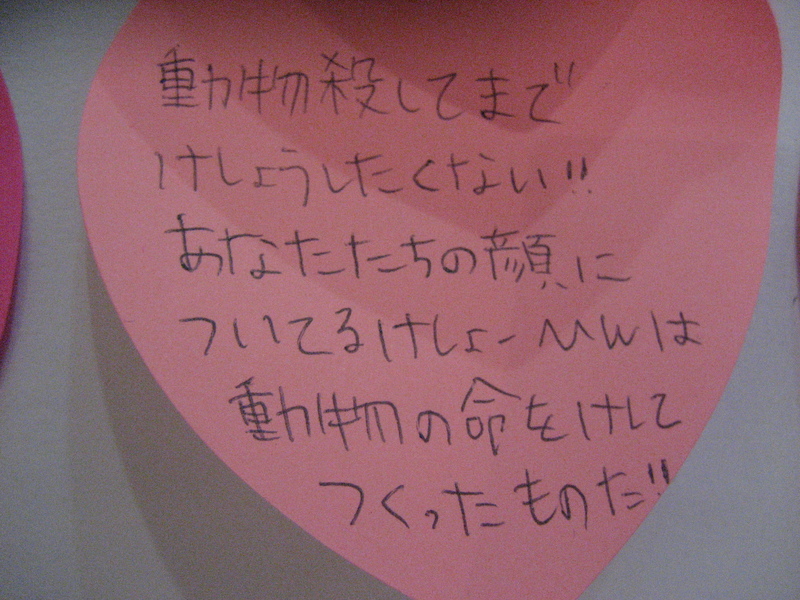 動物殺してまで
けしょうしたくない!!
あなたたちの顔に
ついてるけしょー
動物の命をけして
つくったものだ!!